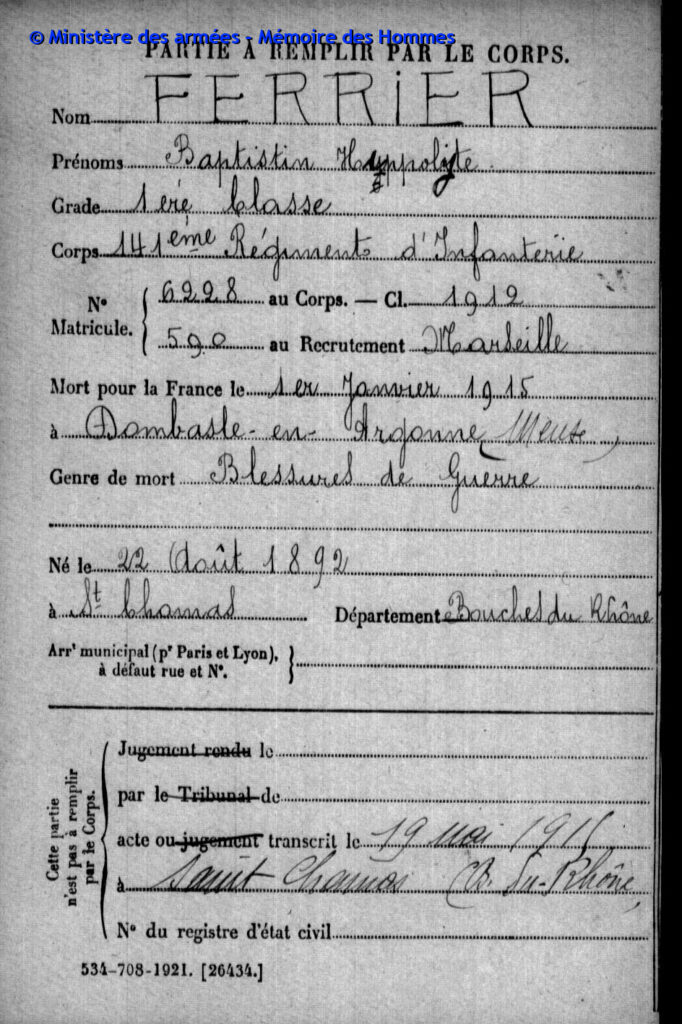 © Ministère des armées - Mémoire des Hommes
PARTIE À REMPLIR PAR LE CORPS.
Nom FERRIER
Prénoms Baptistin Hyppolyte
Grade 1ère Classe
Corps 141ème Régiment d'Infanterie
N° Matricule. 6228 au Corps. — Cl. 1912
590 au Recrutement Marseille
Mort pour la France le 1er Janvier 1915
à Dombasle-en-Argonne (Meuse)
Genre de mort Blessures de Guerre
Né le 22 Août 1892
à St Chamas Département Bouches du Rhône
Arrt municipal (pr Paris et Lyon), à défaut rue et N°.
Cette partie n'est pas à remplir par le Corps.
Jugement rendu le
par le Tribunal de
acte ou jugement transcrit le 19 mai 1915
à Saint Chamas (B. du-Rhône)
N° du registre d'état civil
534-708-1921. [26434.]